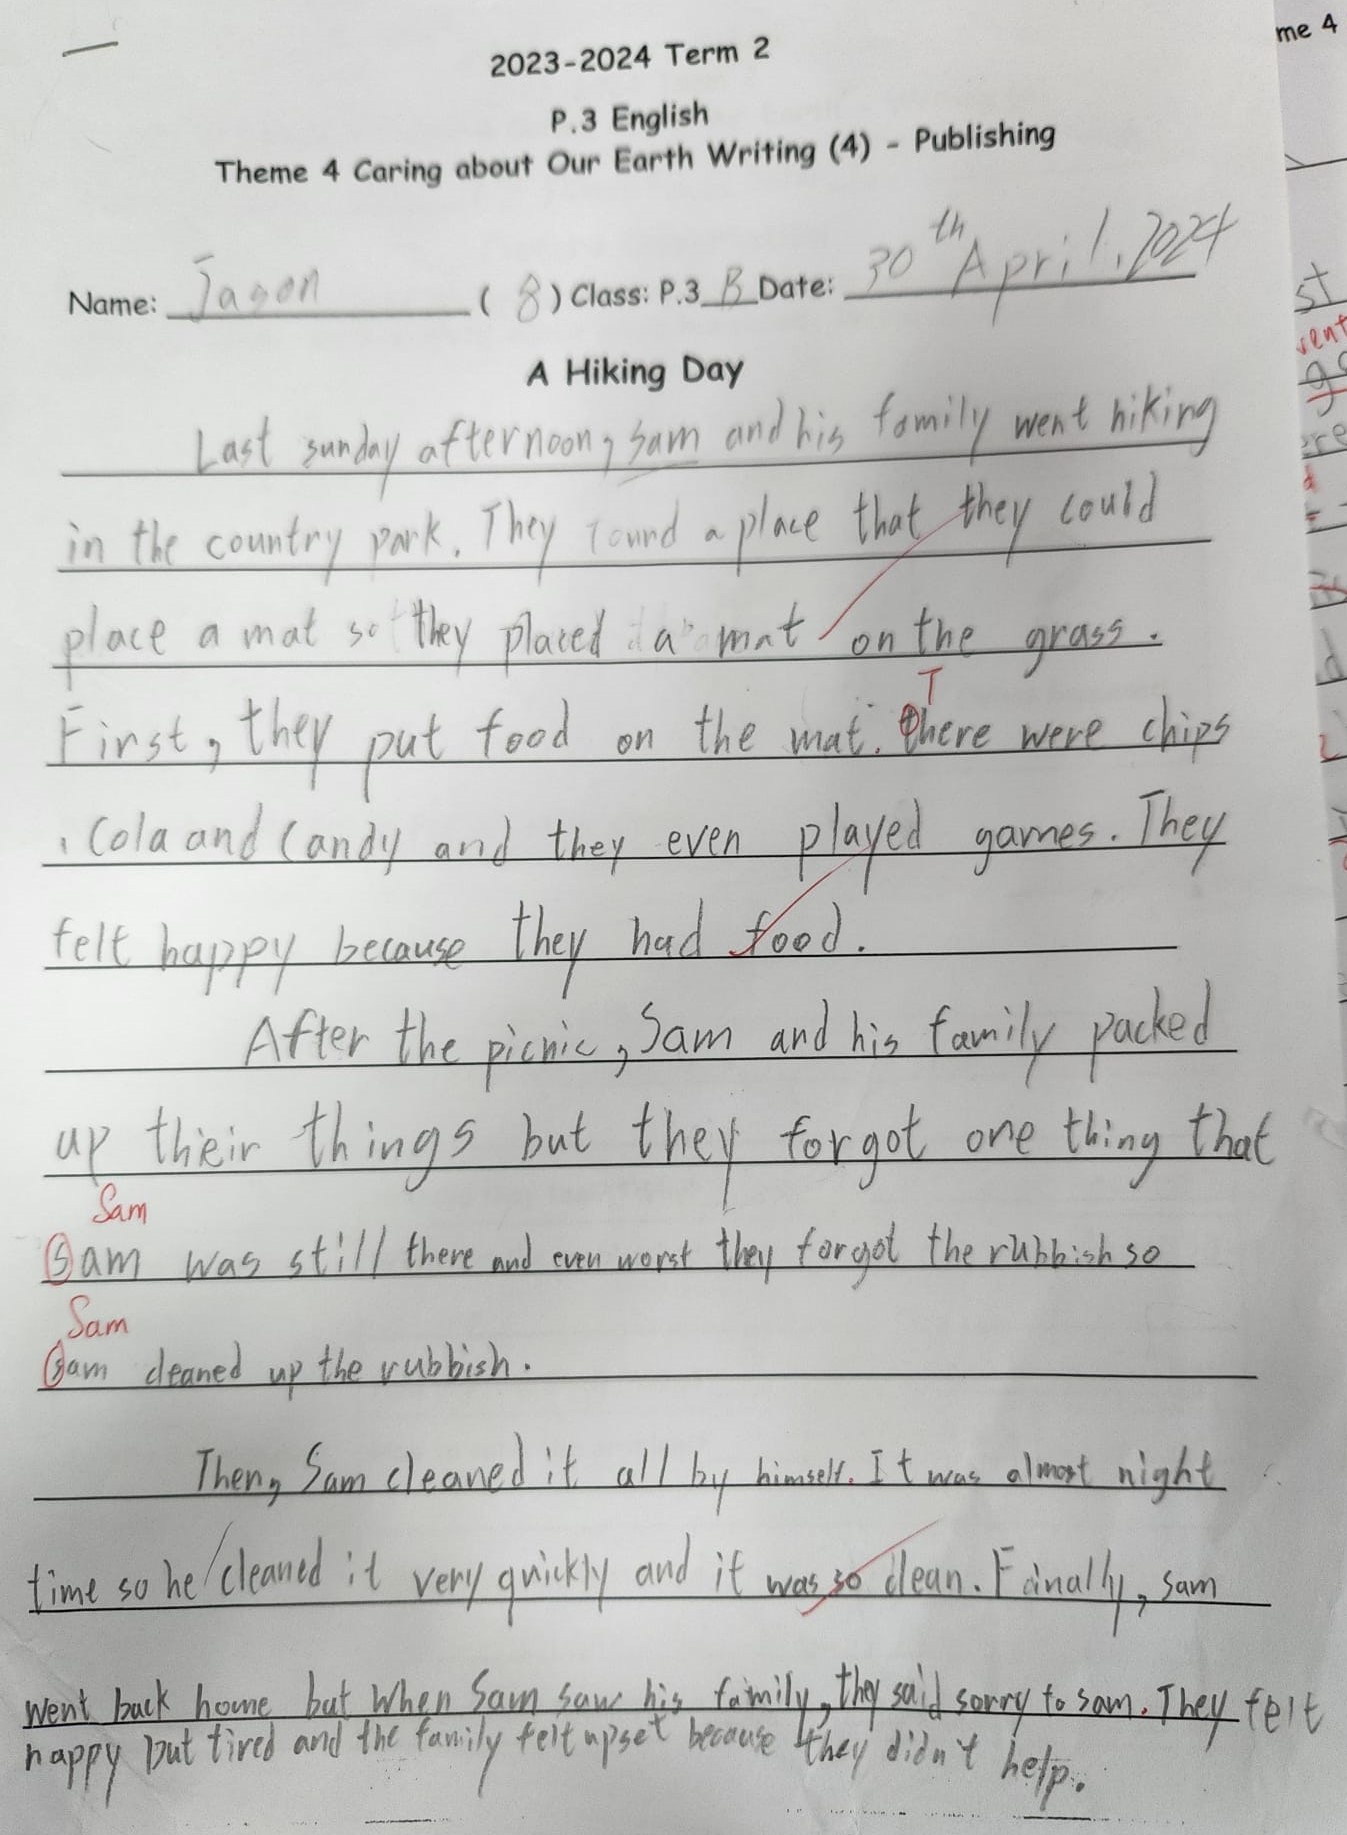 me 4
2023-2024 Term 2
P.3 English
Theme 4 Caring about Our Earth Writing (4) - Publishing
Name: Jason ( 8 ) Class: P.3 B Date: 30th April, 2024
A Hiking Day
Last sunday afternoon, sam and his family went hiking
in the country park. They found a place that they could
place a mat so they placed a mat on the grass.
T
First, they put food on the mat. there were chips
, Cola and Candy and they even played games. They
felt happy because they had food.
After the picnic, Sam and his family packed
up their things but they forgot one thing that
Sam
sam was still there and even worst they forgot the rubbish so
Sam
sam cleaned up the rubbish.
Then, Sam cleaned it all by himself. It was almost night
time so he cleaned it very quickly and it was so clean. Fainally, sam
went back home but when Sam saw his family, they said sorry to sam. They felt
happy but tired and the family felt upset because they didn't help.